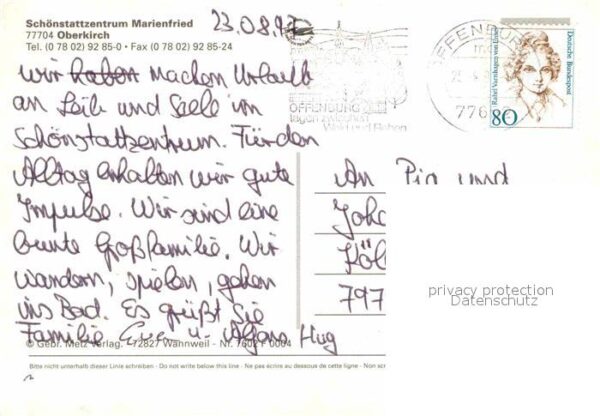 Schönstattzentrum Marienfried
77704 Oberkirch
Tel. (0 78 02) 92 85-0 • Fax (0 78 02) 92 85-24
23.08.97
Wir haben machen Urlaub
an Leib und Seele im
Schönstattzentrum. Für den
Alltag erhalten wir gute
Impulse. Wir sind eine
bunte Großfamilie. Wir
wandern, spielen, gehen
ins Bad. Es grüßt Sie
Familie Eva u. Alfons Hug
An Pia und
Joha
Köl
797
OFFENBURG
OFFENBURG
776
Deutsche Bundespost
Rahel Varnhagen von Ense
80
privacy protection
Datenschutz
© Gebr. Metz Verlag · 72827 Wannweil · Nr. 7602 F 0004
Bitte nicht unterhalb dieser Linie schreiben - Do not write below this line - Ne pas écrire au dessous de cette ligne - Non scr